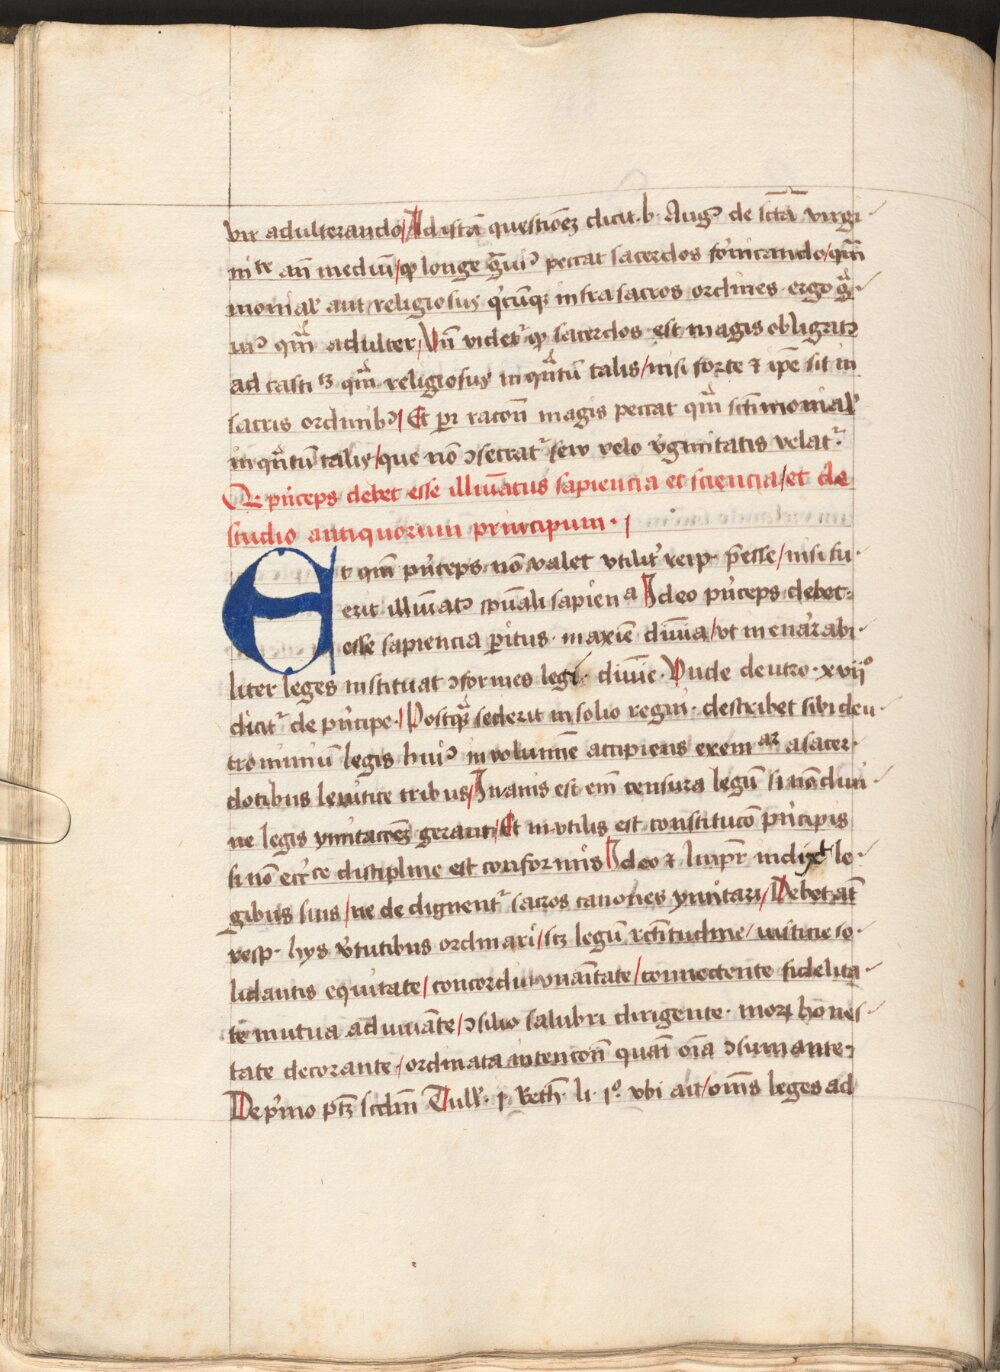 vir adulterando / Ad istā questionēꝫ dicit b. Augꝰ de sctā virgi-
nite an̄ mediū / ꝙ longe gͣuiꝰ peccat sacerdos fornicando / qͣm
monial' aut religiosus qͥcūqꝫ infra sacros ordines ergo gͣ-
uiꝰ qͣm adulter / Vn̄ videtʳ ꝙ sacerdos est magis obligatꝰ
ad castitꝫ qͣm religiosus inqͣntū talis / nisi forte ⁊ ip̄e sit in
sacris ordinibꝰ / Et ꝑ racon̄ magis peccat qͣm sc̄timonial'
inqͣntū talis / que nō ↄsecratʳ seu velo v̓ginitatis velatʳ.
Ꝙ pͥnceps debet esse illūiatus sapiencia et sciencia / et de
studio antiquorum principum . /
Et qm̄ pͥnceps nō valet vtilit̓ reip. p̄esse / nisi fu-
erit illūiatꝰ spūali sapienᵃ / Ideo pͥnceps debet
esse sapiencia ꝑitus . maxīe diuīa / vt inenarrabi-
liter leges instituat ↄformes legi . diuīe . Vnde deutro . xvijº
dicitʳ de pͥncipe . / Postqͣ sederit in solio regni . describet sibi deu-
tronimiū legis huiꝰ in volumīe accipiens exemᵃʳ a sacer-
dotibus leuitice tribus / Inanis est em̄ censura legū si nō diui-
ne legis ymitacionēꝫ gerant / Et invtilis est constitucō pͥncipis
si nō ecc̓ce discipline est conformis / Ideo ⁊ Imp̄r indixit le-
gibus suis / ne de dignentʳ sacros canones ymitari / Debet aūt
resp. hys v̓tutibus ordinari / scꝫ legū rc̄titudine / iusticie so-
lidantis equitate / concordi vnaītate / connectente fidelita-
te mutua adiuuāte / ↄsilio salubri dirigente . moꝝ hones-
tate decorante / ordinata intencon̄ quasi oīa ↄsumante .
De pͥmo ptꝫ scdm̄ Tull' . ī Reth̄ . li . iº . vbi ait / oīns leges ad